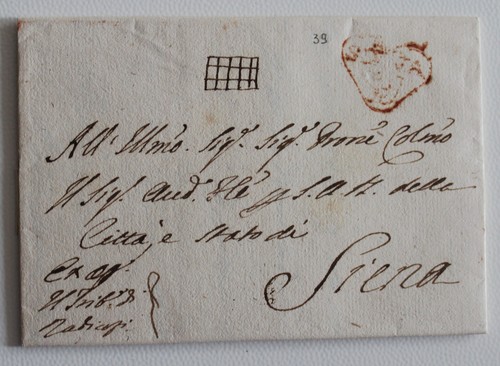 39
All' Illmo. Sig.r Sig.r Prone Colmo
Il Sig.r Aud.e Gle p S.A.R. della
Città, e Stato di
Siena
Ex off.o
Il Trib.e di
Radicofi